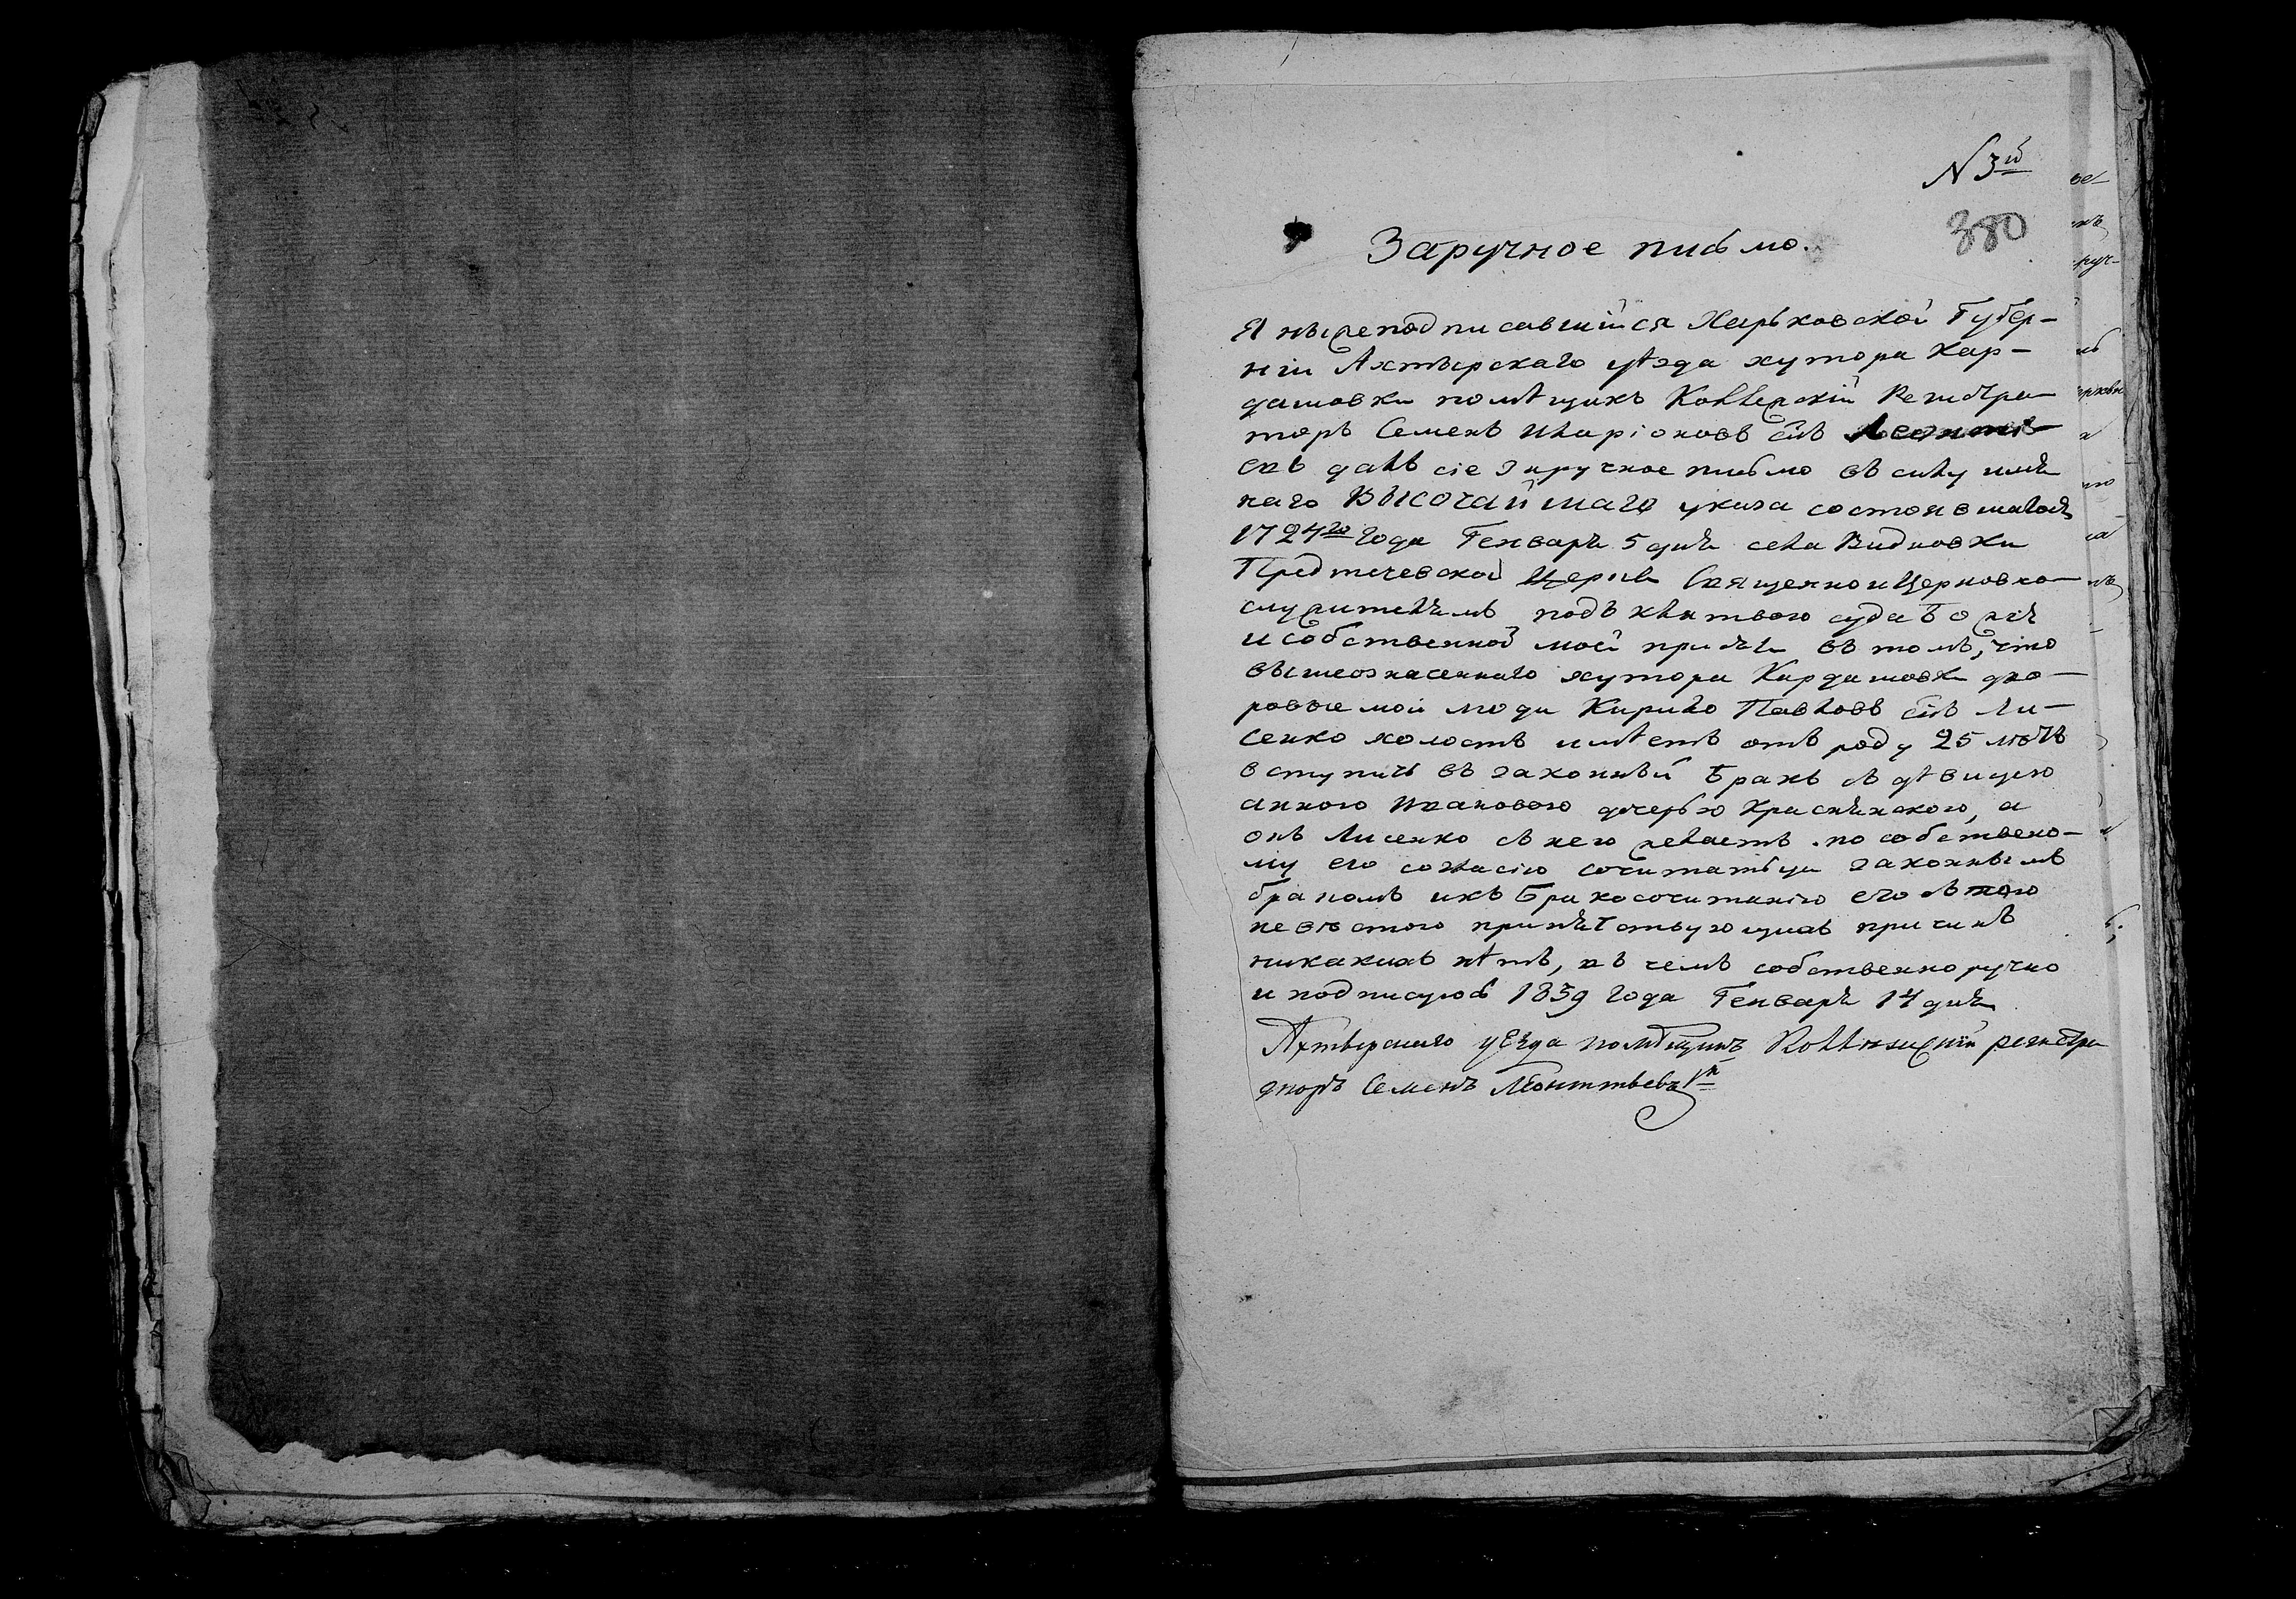 N 3й
380
Заручное письмо.
Я нижеподписавшійся Харьковской Губер-
ніи Ахтырскаго уѣзда хутора Кар-
дашовки помѣщикъ Коллежскій Регистра-
торъ Семенъ Иларіоновъ снъ Леонті-
евъ далъ сіе заручное письмо въ силу имен
наго Высочайшаго указа состоявшагося
1724го года Генваря 5 дня села
Предтечевской Церкви Священноицерковно-
служителямъ подъ клятвою суда Божія
и собственной моей присяги въ томъ, что
вышеозначеннаго хутора Кардашовки дво-
ровые мои люди Кирило Павловъ снъ Ли-
сенко холостъ имѣетъ отъ роду 25 лѣтъ
вступить въ законный Бракъ съ дѣвицею
анною Ивановою дочерью а
онъ Лисенко съ нею желаетъ по собствено-
му его согласію сочитатьця законнымъ
бракомъ икъ Бракосочитанію его съ тою
невѣстою припятствующихъ причинъ
никакихъ нѣтъ, въ чемъ собственноручно
и подписуюсь 1839 года Генваря 14 дня
Ахтырскаго уѣзда помѣщикъ регистра
торъ Семенъ Леонттьевъ